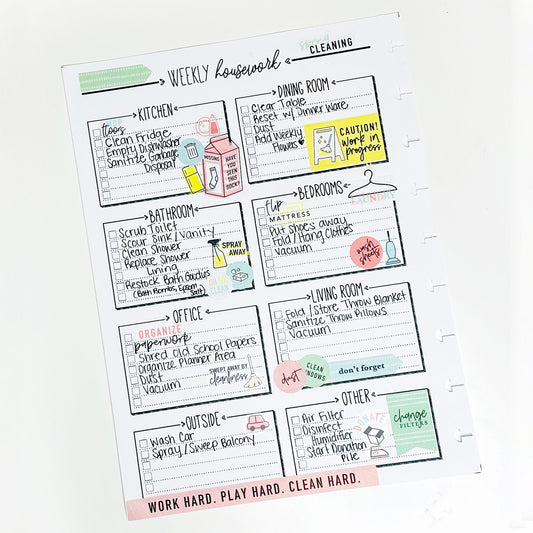 WEEKLY housework
spring
CLEANING
KITCHEN
MOP
floors
Clean Fridge
Empty Dishwasher
Sanitize Garbage
Disposal
MISSING
HAVE YOU SEEN THIS SOCK?
DINING ROOM
Clear Table
Reset w/ Dinner Ware
Dust
Add Weekly
Flowers
CAUTION!
work in
progress
BATHROOM
Scrub Toilet
Scour Sink/Vanity
Clean Shower
Replace Shower
Lining
Restock Bath Goodies
(Bath Bombs, Epsom
Salt)
SPRAY
AWAY
BEDROOMS
LAUNDRY
flip
MATTRESS
Put Shoes away
Fold/Hang Clothes
Vacuum
wash
sheets
OFFICE
ORGANIZE
paperwork
Shred Old School Papers
Organize Planner Area
Dust
Vacuum
SWEPT AWAY BY
cleanliness
LIVING ROOM
Fold/Store Throw Blanket
Sanitize Throw Pillows
Vacuum
dust
CLEAN
WINDOWS
don't forget
OUTSIDE
Wash Car
Spray/Sweep Balcony
OTHER
Air Filter
Disinfect
Humidifier
Start Donation
Pile
DONATE
change
FILTERS
WORK HARD. PLAY HARD. CLEAN HARD.